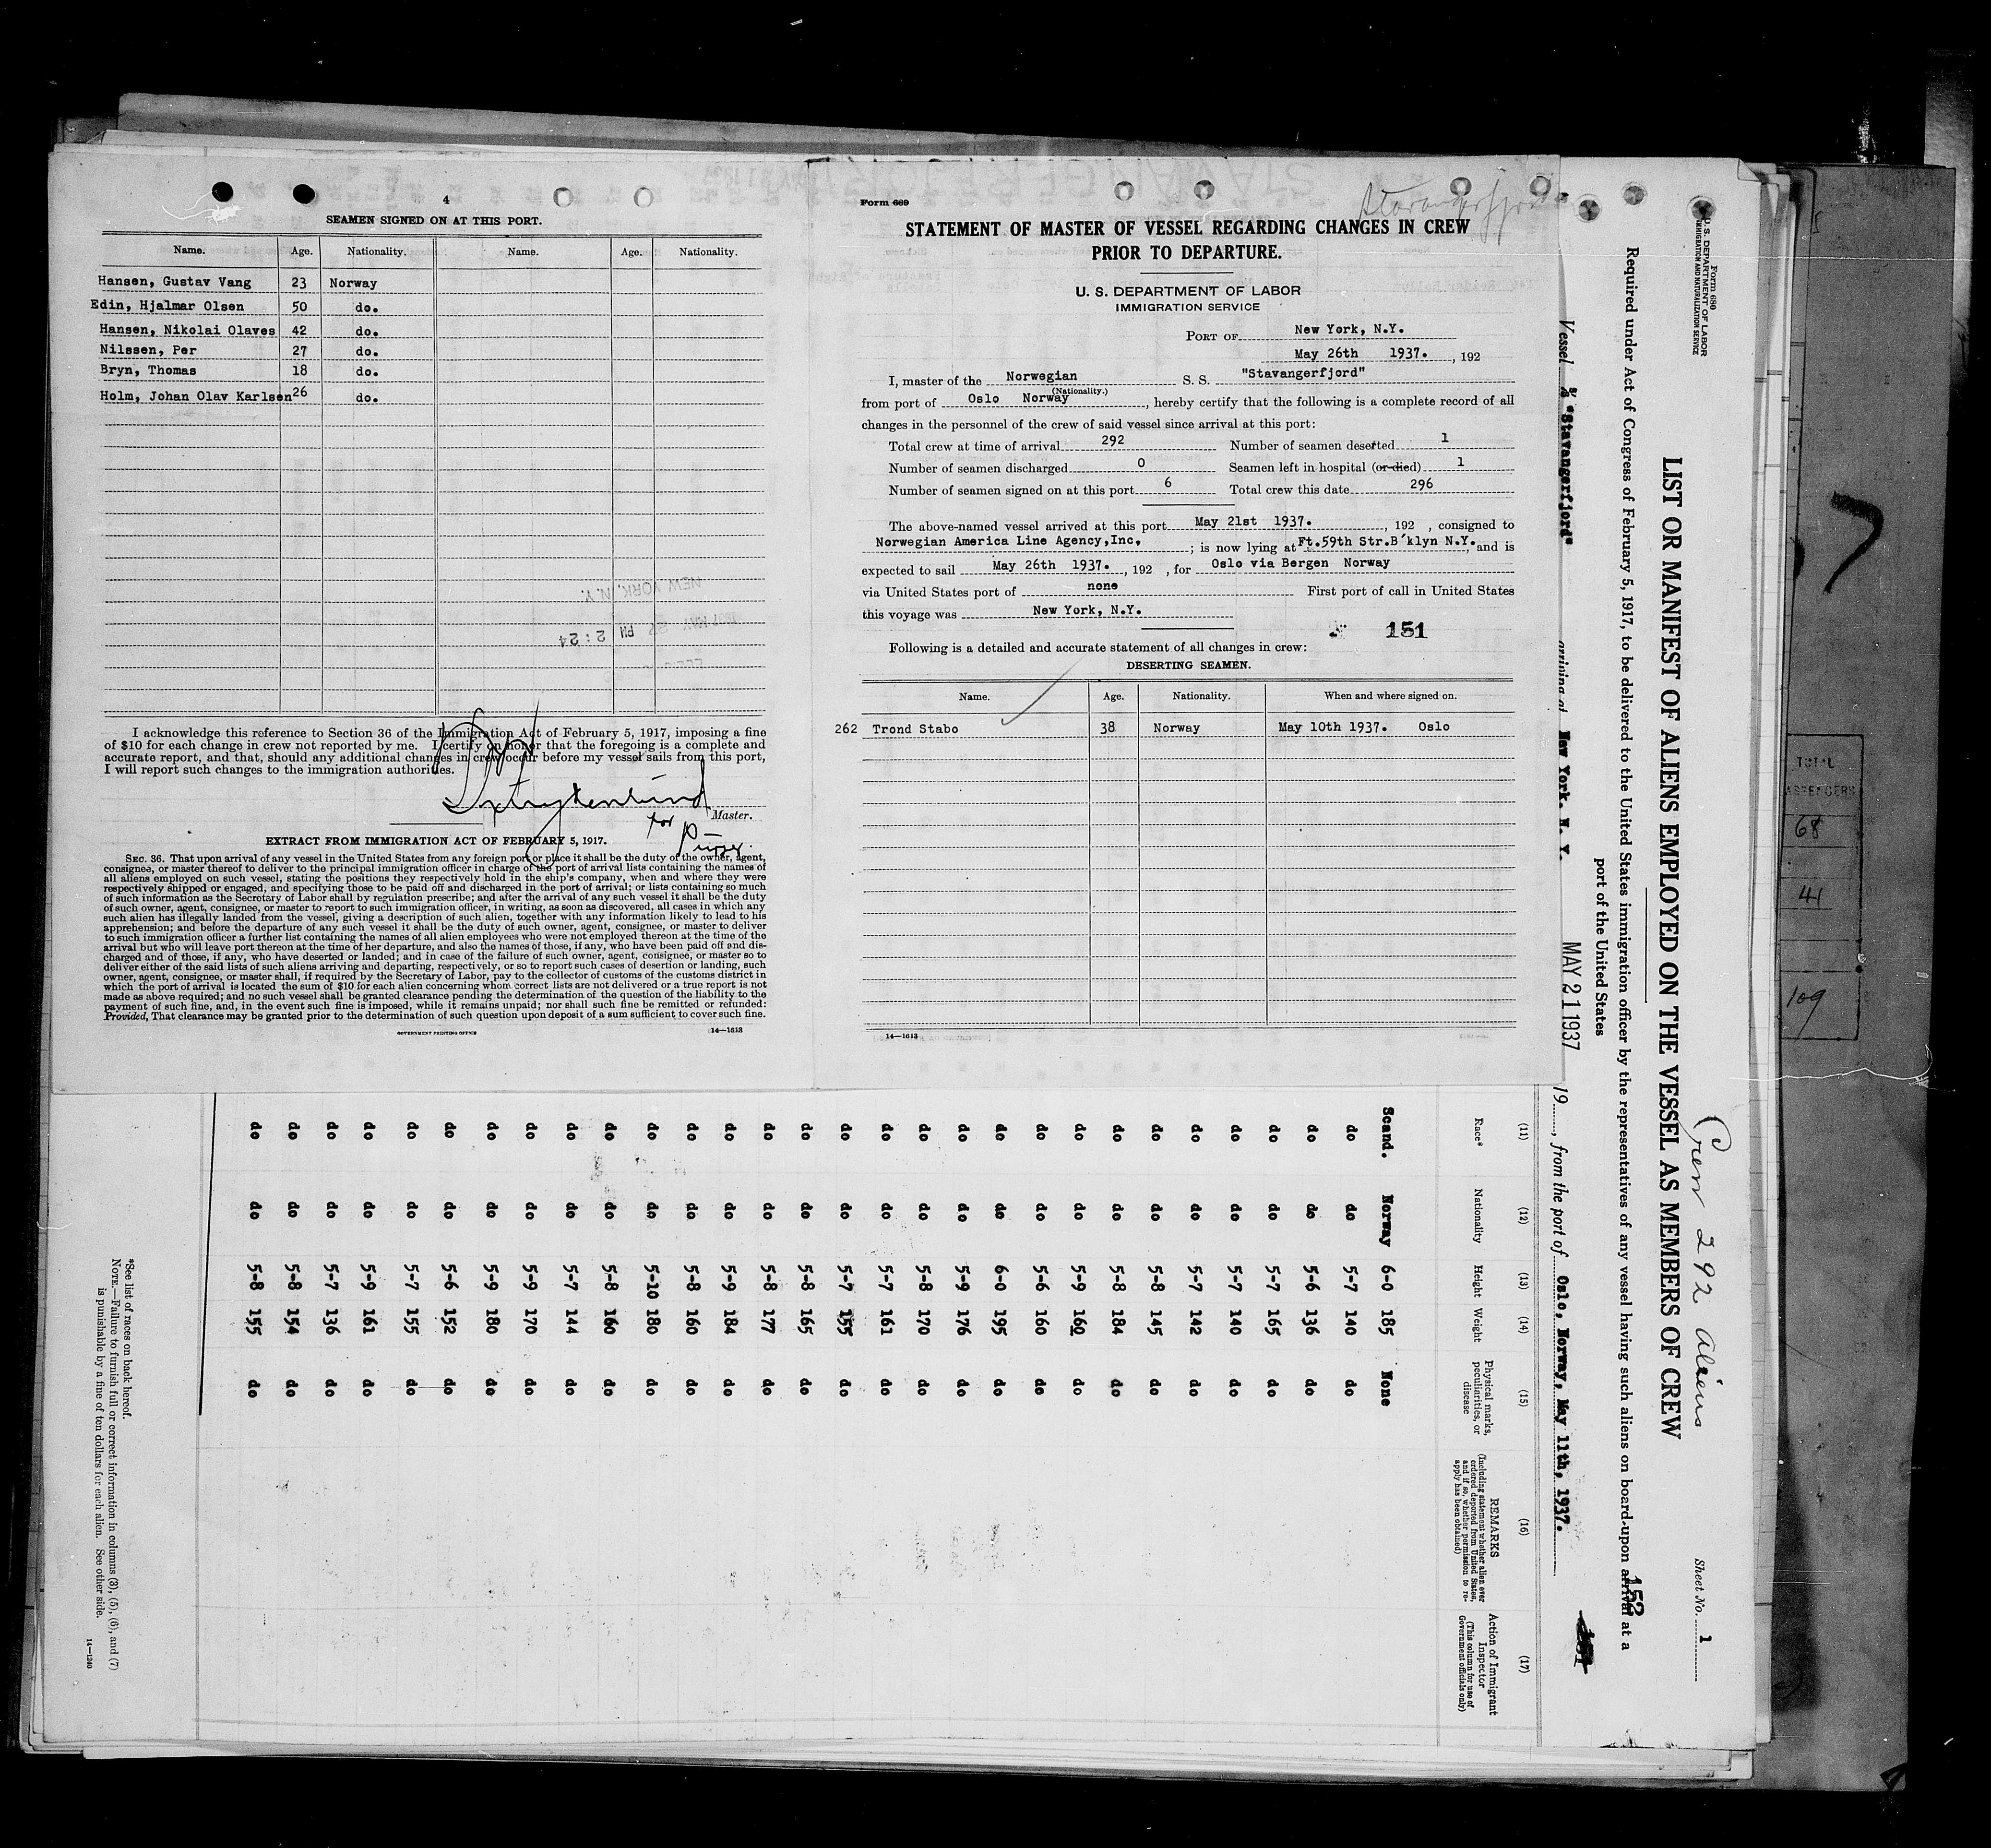 4
SEAMEN SIGNED ON AT THIS PORT.
Name. Age. Nationality. Name. Age. Nationality.
Hansen, Gustav Vang 23 Norway
Edin, Hjalmar Olsen 50 do.
Hansen, Nikolai Olaves 42 do.
Nilssen, Per 27 do.
Bryn, Thomas 18 do.
Holm, Johan Olav Karlsen 26 do.
NEW YORK, N.Y.
PM 2:24
I acknowledge this reference to Section 36 of the Immigration Act of February 5, 1917, imposing a fine
of $10 for each change in crew not reported by me. I certify on honor that the foregoing is a complete and
accurate report, and that, should any additional changes in crew occur before my vessel sails from this port,
I will report such changes to the immigration authorities.
Master.
for Purser.
EXTRACT FROM IMMIGRATION ACT OF FEBRUARY 5, 1917.
SEC. 36. That upon arrival of any vessel in the United States from any foreign port or place it shall be the duty of the owner, agent,
consignee, or master thereof to deliver to the principal immigration officer in charge of the port of arrival lists containing the names of
all aliens employed on such vessel, stating the positions they respectively hold in the ship's company, when and where they were
respectively shipped or engaged, and specifying those to be paid off and discharged in the port of arrival; or lists containing so much
of such information as the Secretary of Labor shall by regulation prescribe; and after the arrival of any such vessel it shall be the duty
of such owner, agent, consignee, or master to report to such immigration officer, in writing, as soon as discovered, all cases in which any
such alien has illegally landed from the vessel, giving a description of such alien, together with any information likely to lead to his
apprehension; and before the departure of any such vessel it shall be the duty of such owner, agent, consignee, or master to deliver
to such immigration officer a further list containing the names of all alien employees who were not employed thereon at the time of the
arrival but who will leave port thereon at the time of her departure, and also the names of those, if any, who have been paid off and dis-
charged and of those, if any, who have deserted or landed; and in case of the failure of such owner, agent, consignee, or master so to
deliver either of the said lists of such aliens arriving and departing, respectively, or so to report such cases of desertion or landing, such
owner, agent, consignee, or master shall, if required by the Secretary of Labor, pay to the collector of customs of the customs district in
which the port of arrival is located the sum of $10 for each alien concerning whom correct lists are not delivered or a true report is not
made as above required; and no such vessel shall be granted clearance pending the determination of the question of the liability to the
payment of such fine, and, in the event such fine is imposed, while it remains unpaid; nor shall such fine be remitted or refunded:
Provided, That clearance may be granted prior to the determination of such question upon deposit of a sum sufficient to cover such fine.
GOVERNMENT PRINTING OFFICE 14—1613
Form 689
Stavangerfjord
STATEMENT OF MASTER OF VESSEL REGARDING CHANGES IN CREW
PRIOR TO DEPARTURE.
U. S. DEPARTMENT OF LABOR
IMMIGRATION SERVICE
PORT OF New York, N.Y.
May 26th 1937. , 192
I, master of the Norwegian S. S. "Stavangerfjord"
(Nationality.)
from port of Oslo Norway, hereby certify that the following is a complete record of all
changes in the personnel of the crew of said vessel since arrival at this port:
Total crew at time of arrival 292 Number of seamen deserted 1
Number of seamen discharged 0 Seamen left in hospital (or died) 1
Number of seamen signed on at this port 6 Total crew this date 296
The above-named vessel arrived at this port May 21st 1937. , 192 , consigned to
Norwegian America Line Agency,Inc, ; is now lying at Ft.59th Str.B'klyn N.Y., and is
expected to sail May 26th 1937. , 192 , for Oslo via Bergen Norway
via United States port of none First port of call in United States
this voyage was New York, N.Y.
151
Following is a detailed and accurate statement of all changes in crew:
DESERTING SEAMEN.
Name. Age. Nationality. When and where signed on.
262 Trond Stabo 38 Norway May 10th 1937. Oslo
14—1613
Form 680
U. S. DEPARTMENT OF LABOR
IMMIGRATION AND NATURALIZATION SERVICE
Crew 292 Aliens
Sheet No. 1
LIST OR MANIFEST OF ALIENS EMPLOYED ON THE VESSEL AS MEMBERS OF CREW
Required under Act of Congress of February 5, 1917, to be delivered to the United States immigration officer by the representatives of any vessel having such aliens on board upon arrival at a
port of the United States
152
151
Vessel "Stavangerfjord" arriving at New York. N. Y. MAY 21 1937 19 , from the port of Oslo, Norway, May 11th, 1937.
(11) (12) (13) (14) (15) (16) (17)
Race* Nationality Height Weight Physical marks, peculiarities, or disease REMARKS (Including statement whether alien ever ordered deported from United States, and if so, whether permission to re-apply has been obtained) Action of Immigrant Inspector (This column for use of Government officials only)
Scand. Norway 6-0 185 None
do do 5-7 140 do
do do 5-6 136 do
do do 5-7 165 do
do do 5-7 140 do
do do 5-7 142 do
do do 5-8 145 do
do do 5-8 184 do
do do 5-9 160 do
do do 5-6 160 do
do do 6-0 195 do
do do 5-9 176 do
do do 5-8 170 do
do do 5-7 161 do
do do 5-7 155 do
do do 5-8 165 do
do do 5-8 177 do
do do 5-9 184 do
do do 5-8 160 do
do do 5-10 180 do
do do 5-8 160 do
do do 5-7 144 do
do do 5-9 170 do
do do 5-9 180 do
do do 5-6 152 do
do do 5-7 155 do
do do 5-9 161 do
do do 5-7 136 do
do do 5-8 154 do
do do 5-8 155 do
*See list of races on back hereof.
NOTE.—Failure to furnish full or correct information in columns (3), (5), (6), and (7)
is punishable by a fine of ten dollars for each alien. See other side.
14—1240
7
TOTAL
PASSENGERS
68
41
109